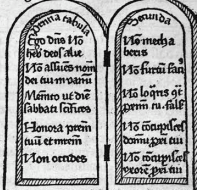 Prima tabula
Ego dns No
heb deos alie
No assues nom
dei tui in panu
Memto ut diē
sabbati scifices
Honora prem
tuū et mrem
Non occides
Secunda
No mecha
beris
No furtū faci
No loqris gt
prem tu. fals
No cōcupisces
domū pxi tui
No cōcupisces
vxore pxi tui